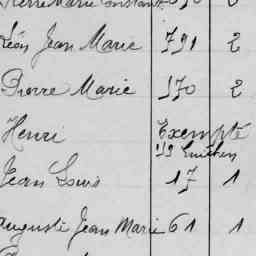 Pierre Marie Constant
Léon Jean Marie 791 2
Pierre Marie 170 2
Henri Exempté
Jean Louis 17 1
Auguste Jean Marie 61 1